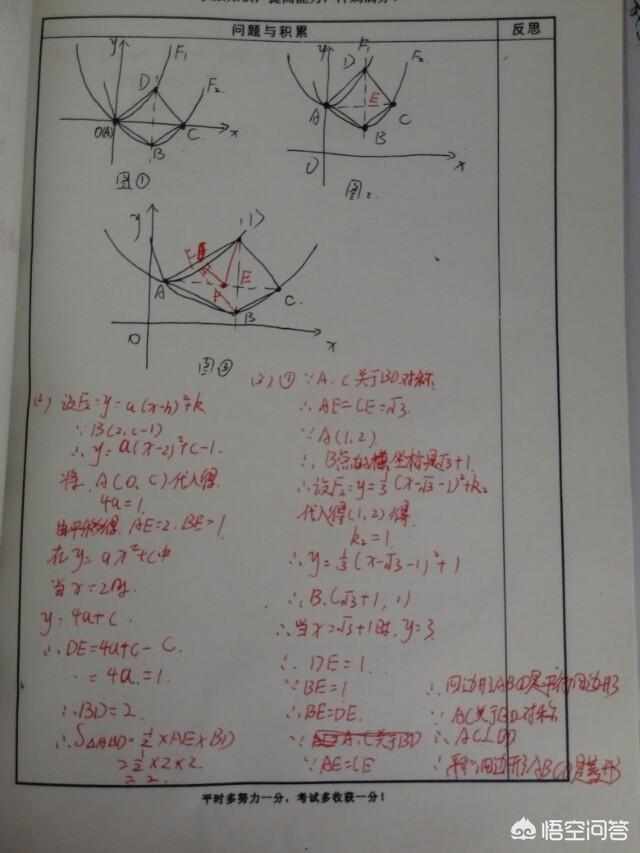 问题与积累
反思
y
D
F₁
F₂
O(A)
B
C
x
图①
y
F₁
D
F₂
A
E
C
B
O
x
图2
y
D
F
E
A
P
C
B
O
x
图③
(2) 设F₂:y=a(x-h)²+k
∵B(2,c-1)
∴y=a(x-2)²+c-1
将A(0,C)代入得
4a=1
由平移得 AE=2. BE=1
在y=ax²+c中
当x=2时
y=4a+c.
∴DE=4a+c-C.
=4a.=1.
∴BD=2.
∴S△ABD=½×AE×BD
=½×2×2
=2.
(3)①∵A、C关于BD对称
∴AE=CE=√3.
∵A(1,2)
∴B点的横坐标是√3+1.
∴设F₂:y=⅓(x-√3-1)²+k₂
代入得(1,2)得
k₂=1.
∴y=⅓(x-√3-1)²+1
∴B.(√3+1,1)
∴当x=√3+1时,y=3
∴DE=1.
∵BE=1
∴BE=DE.
∵AE=CE
∴四边形ABCD是平行四边形
∵AC关于BD对称
∴AC⊥BD
∴平行四边形ABCD是菱形
平时多努力一分,考试多收获一分!
悟空问答